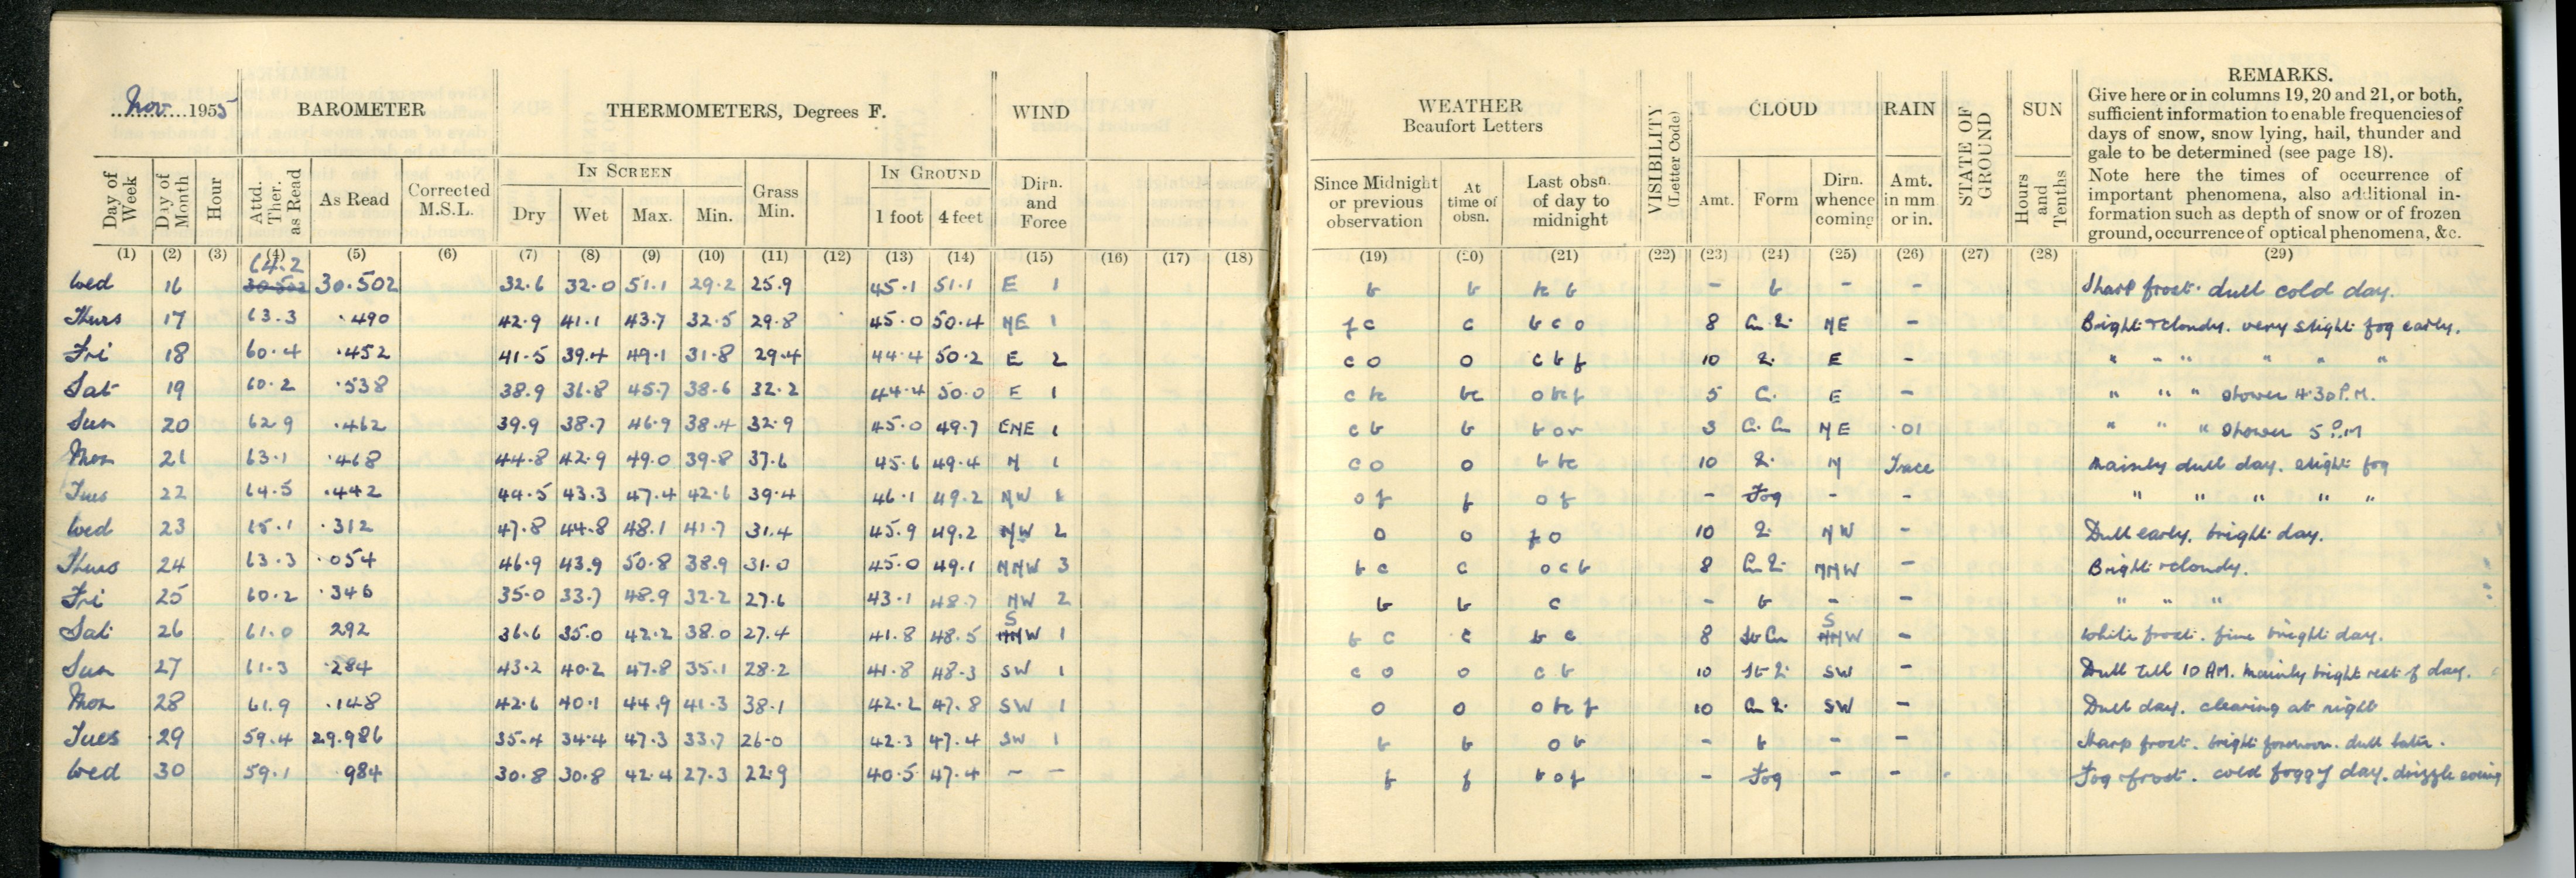 Nov. 1955 BAROMETER THERMOMETERS, Degrees F. WIND WEATHER Beaufort Letters VISIBILITY (Letter Code) CLOUD RAIN STATE OF GROUND SUN REMARKS.
Give here or in columns 19, 20 and 21, or both,
sufficient information to enable frequencies of
days of snow, snow lying, hail, thunder and
gale to be determined (see page 18).
Note here the times of occurrence of
important phenomena, also additional in-
formation such as depth of snow or of frozen
ground, occurrence of optical phenomena, &c.
IN SCREEN IN GROUND
Day of Week Day of Month Hour Attd. Ther. as Read As Read Corrected M.S.L. Dry Wet Max. Min. Grass Min. 1 foot 4 feet Dirn. and Force Since Midnight or previous observation At time of obsn. Last obsn. of day to midnight Amt. Form Dirn. whence coming Amt. in mm or in. Hours and Tenths
(1) (2) (3) (4) (5) (6) (7) (8) (9) (10) (11) (12) (13) (14) (15) (16) (17) (18) (19) (20) (21) (22) (23) (24) (25) (26) (27) (28) (29)
Wed 16 64.2 30.502 30.502 32.6 32.0 51.1 29.2 25.9 45.1 51.1 E 1 b b bc b - b - - Sharp frost. dull cold day.
Thurs 17 63.3 .490 42.9 41.1 43.7 32.5 29.8 45.0 50.4 NE 1 f c c b c o 8 NE - Bright & cloudy. very slight fog early.
Fri 18 60.4 .452 41.5 39.4 49.1 31.8 29.4 44.4 50.2 E 2 c o o c b f 10 E - " " " " " "
Sat 19 60.2 .538 38.9 36.8 45.7 38.6 32.2 44.4 50.0 E 1 c bc bc o bc f 5 C. E - " " " shower 4.30 P.M.
Sun 20 62.9 .462 39.9 38.7 46.9 38.4 32.9 45.0 49.7 ENE 1 c b b b o r 3 NE .01 " " " shower 5 P.M
Mon 21 63.1 .468 44.8 42.9 49.0 39.8 37.6 45.6 49.4 N 1 c o o b bc 10 N Trace mainly dull day. slight fog
Tues 22 64.5 .442 44.5 43.3 47.4 42.6 39.4 46.1 49.2 NW 1 o f f o f - Fog - - " " " " "
Wed 23 65.1 .312 47.8 44.8 48.1 41.7 31.4 45.9 49.2 NW 2 o o f o 10 NW - Dull early. bright day.
Thurs 24 63.3 .054 46.9 43.9 50.8 38.9 31.0 45.0 49.1 NNW 3 b c c o c b 8 NNW - Bright & cloudy.
Fri 25 60.2 .346 35.0 33.7 48.9 32.2 27.6 43.1 48.7 NW 2 b b c - b - - " " "
Sat 26 61.0 292 36.6 35.0 42.2 38.0 27.4 41.8 48.5 SW 1 b c c b c 8 St Cu SW - White frost. fine bright day.
Sun 27 61.3 .284 43.2 40.2 47.8 35.1 28.2 41.8 48.3 SW 1 c o o c b 10 SW - Dull till 10 AM. mainly bright rest of day.
Mon 28 61.9 .148 42.6 40.1 44.9 41.3 38.1 42.2 47.8 SW 1 o o o bc f 10 SW - Dull day. clearing at night
Tues 29 59.4 29.986 35.4 34.4 47.3 33.7 26.0 42.3 47.4 SW 1 b b o b - b - - Sharp frost. bright forenoon. dull later.
Wed 30 59.1 984 30.8 30.8 42.4 27.3 22.9 40.5 47.4 - - f f b o f - Fog - - Fog & frost. cold foggy day. drizzle